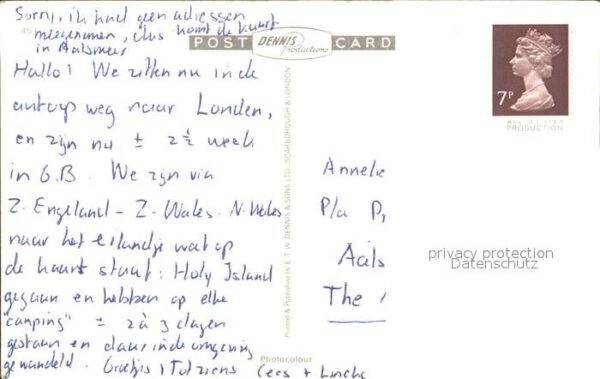 Sorry, ik had geen adressen
meegenomen, dus komt de kaart
in Aalsmeer
POST CARD
DENNIS
Productions
Hallo! We zitten nu in de
autoop weg naar Londen,
en zijn nu ± 2½ week
in G.B. We zijn via
Z. Engeland - Z. Wales. N. Wales
naar het eilandje wat op
de kaart staat: Holy Island
gegaan en hebben op elke
"camping" ± 2 à 3 dagen
gestaan en daar in de omgeving
gewandeld. Groetjes, Tot ziens Cees +
Printed & Published by E. T. W. DENNIS & SONS LTD., SCARBOROUGH & LONDON
Photocolour
7P
PRODUCTION
Anneke
P/a
Aals
The
privacy protection
Datenschutz